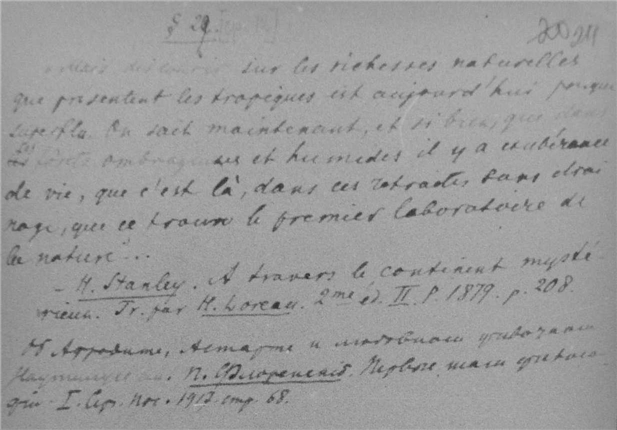 § 29
20 211
discourir sur les richesses naturelles
que présentent les tropiques est aujourd'hui presque
superflu. On sait maintenant, et si bien, que dans
les forêts ombrageuses et humides il y a exubérance
de vie, que c'est là, dans ces retraites sans
que ce trouve le premier laboratoire de
la nature"...
– H. Stanley. A travers le continent mysté-
rieux. Tr. par H. Loreau. 2me éd. II. P. 1879. p. 208.
Об Афродите, Астарте и
П. Флоренский. Первые шаги филосо-
фии I. Сер. Пос. 1917. стр. 68.